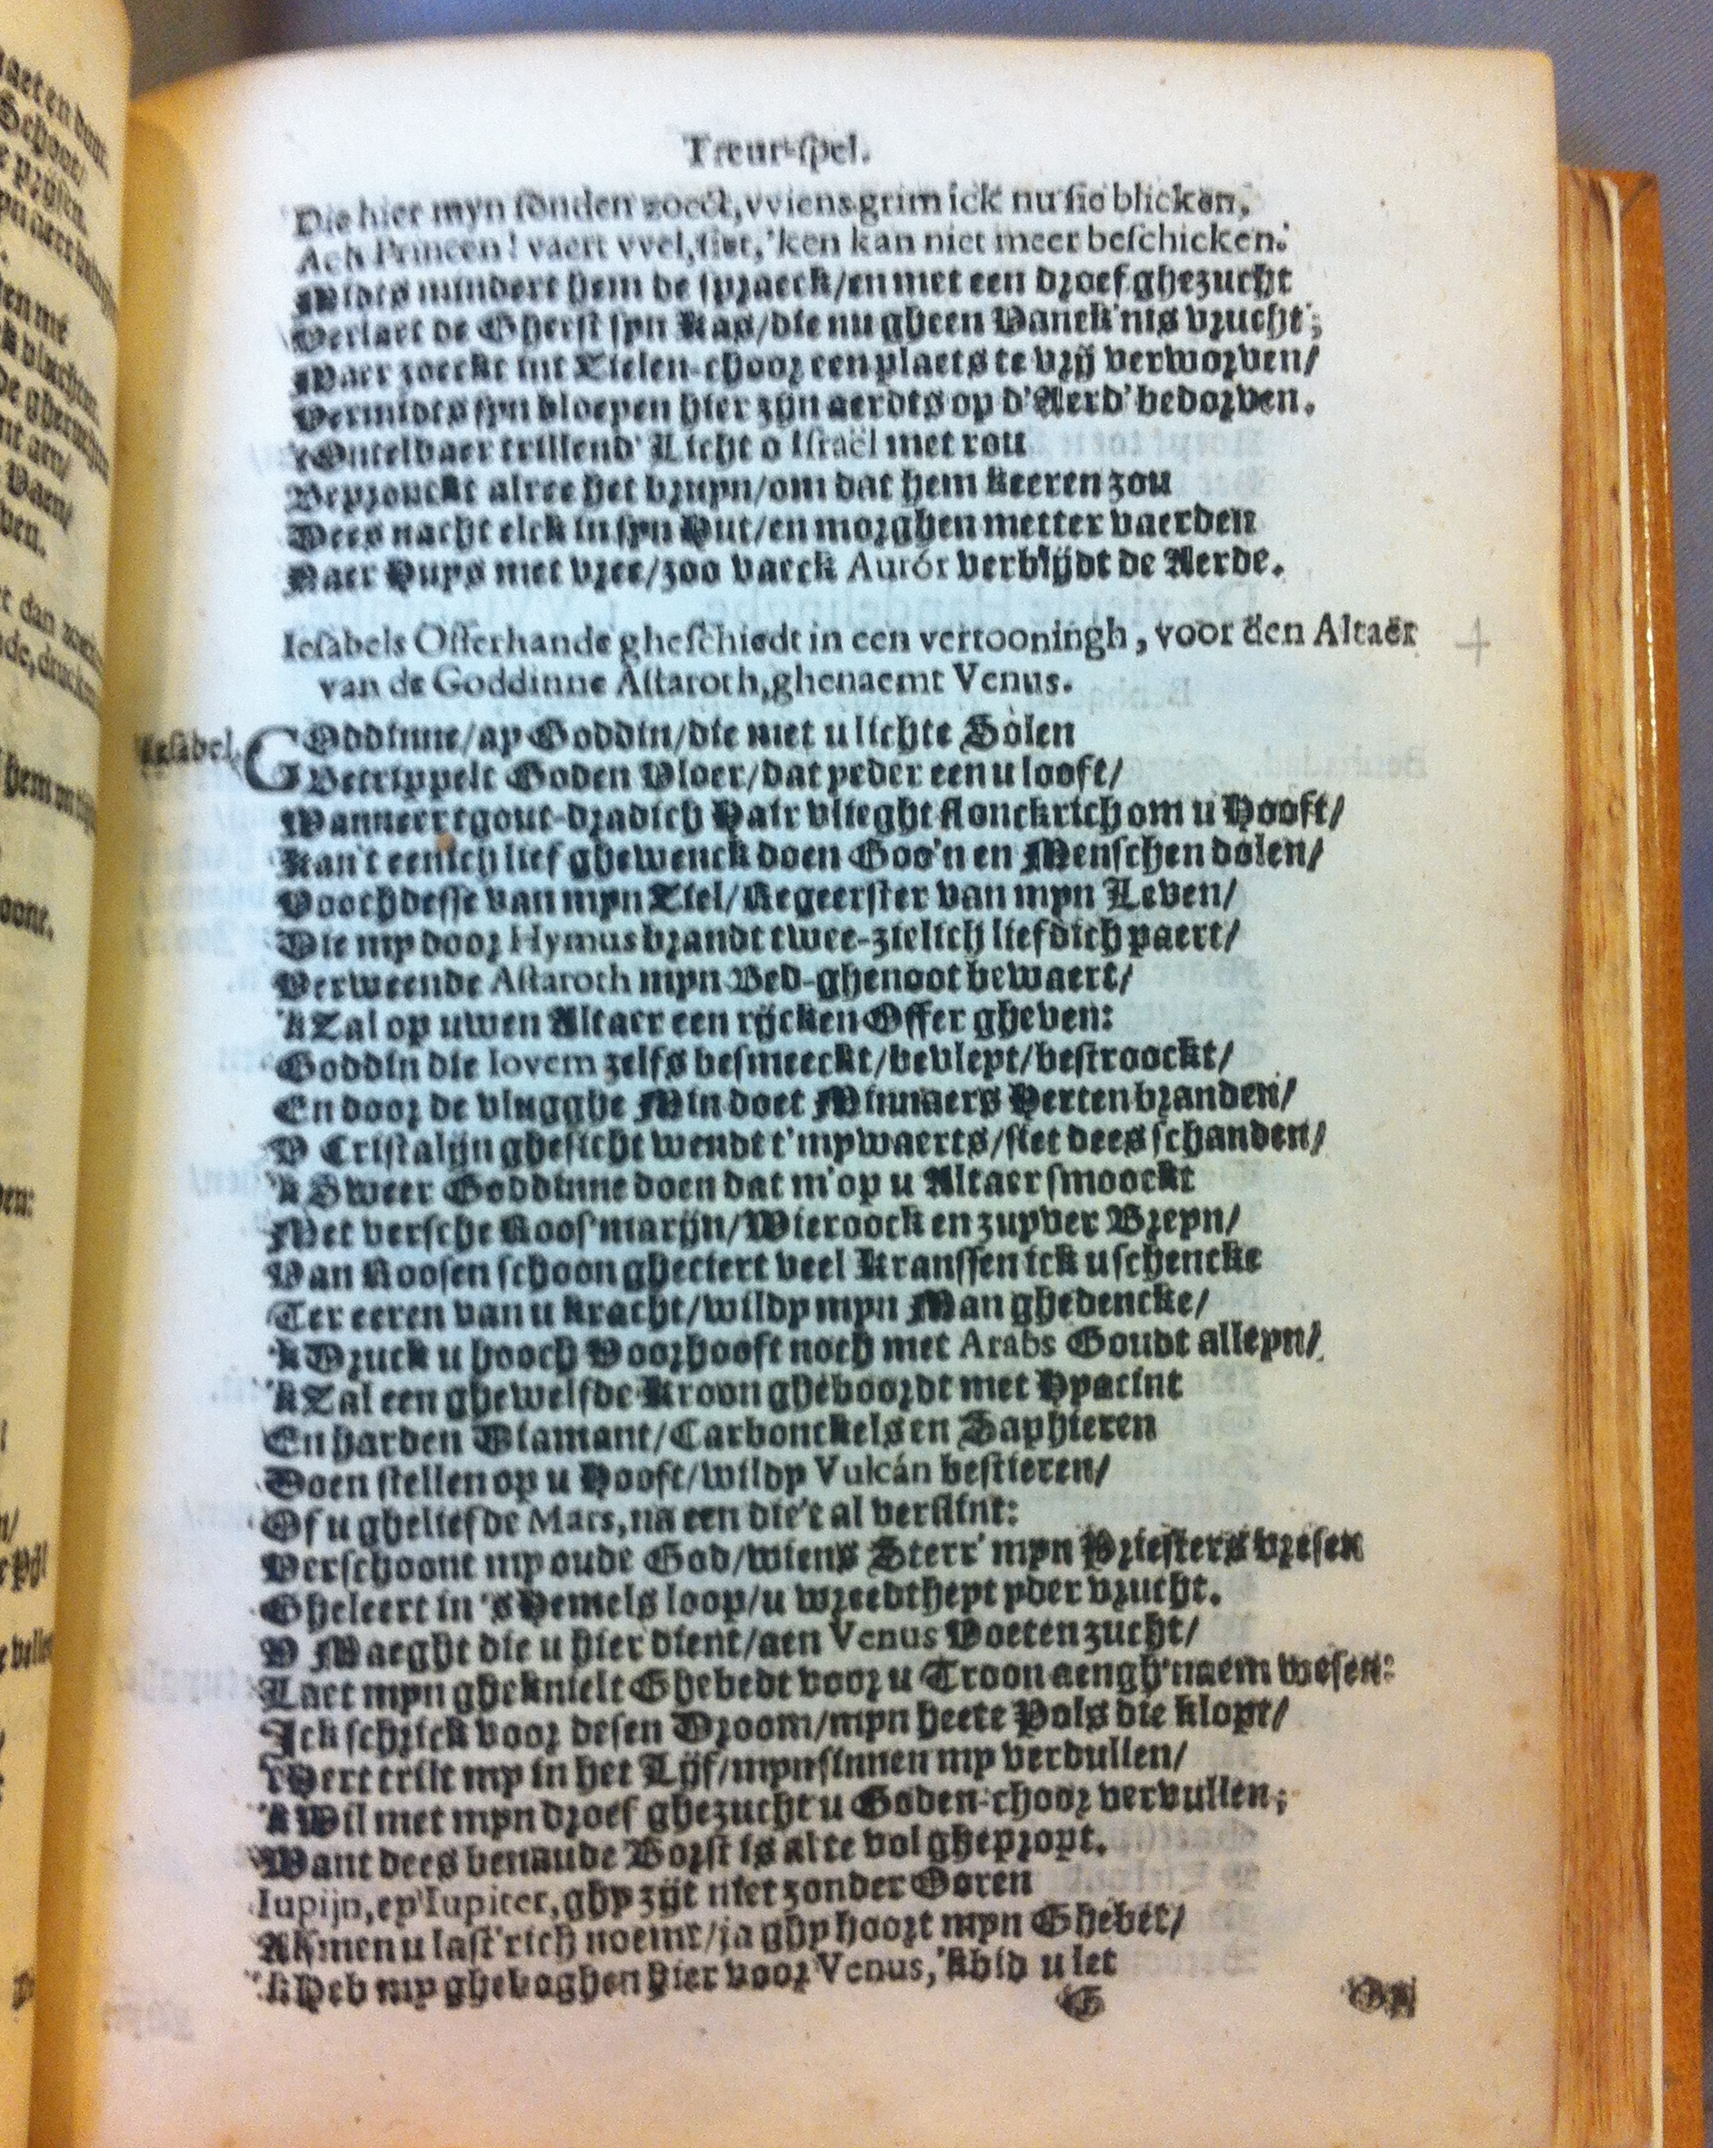 Treur-ſpel.
Die hier myn ſonden zoeckt, vviens grim ick nu ſie blicken,
Ach Princen! vaert vvel, ſiet, 'ken kan niet meer beſchicken.
Midts mindert hem de ſpraeck/en met een droef ghezucht
Verlaet de Gheeſt ſyn Kas/die nu gheen Vanck'nis vrucht;
Maer zoeckt int Zielen-choor een plaets te vrij verworven/
Vermidts ſyn bloeyen hier zijn aerdts op d'Aerd' bedorven.
't Ontelbaer trillend' Licht o Iſraël met rou
Bepronckt alree het bruyn/om dat hem keeren zou
Dees nacht elck in ſyn Hut/en morghen metter vaerden
Naer Huys met vree/zoo vaeck Aurór verblijdt de Aerde.
Ieſabels Offerhande gheſchiedt in een vertooningh, voor den Altaer
van de Goddinne Aſtaroth, ghenaemt Venus.
Ieſabel. GOddinne/ay Goddin/die met u lichte Solen
Betrippelt Goden Vloer/dat yeder een u looft/
Wanneer tgout-dradich Hair vlieght flonckrich om u Hooft/
Kan't eenich lief ghewenck doen Goo'n en Menſchen dolen/
Voochdeſſe van myn Ziel/Regeerſter van myn Leven/
Die my door Hymus brandt twee-zielich liefdich paert/
Verweende Aſtaroth myn Bed-ghenoot bewaert/
'k Zal op uwen Altaer een rijcken Offer gheven:
Goddin die Iovem zelfs beſmeeckt/bevleyt/beſtroockt/
En door de vlugghe Min doet Minnaers Herten branden/
V Criſtalijn gheſicht wendt t'mywaerts/ſiet dees ſchanden/
'k Sweer Goddinne doen dat m'op u Altaer ſmoockt
Met verſche Rooſ'marijn/Wieroock en zuyver Breyn/
Van Rooſen ſchoon gheciert veel Kranſſen ick u ſchencke
Ter eeren van u kracht/wildy myn Man ghedencke/
'k Druck u hooch Voorhooft noch met Arabs Goudt alleyn/
'k Zal een ghewelfde Kroon gheboordt met Hyacint
En harden Diamant/Carbonckels en Saphieren
Doen ſtellen op u Hooft/wildy Vulcán beſtieren/
Of u ghelieſde Mars, na een die't al verſlint:
Verſchoont my oude God/wiens Sterr' myn Prieſters vreſen
Gheleert in 's Hemels loop/u wreedtheyt yder vrucht.
V Maeght die u hier dient/aen Venus Voeten zucht/
Laet myn gheknielt Ghebedt voor u Troon aengh'naem weſen:
Ick ſchrick voor deſen Droom/myn heete Pols die klopt/
't Hert trilt my in het Lijf/myn ſinnen my verdullen/
'k Wil met myn droef ghezucht u Goden-choor vervullen;
Want dees benaude Borſt is al te vol gheproptt.
Iupijn, ey Iupiter, ghy zijt niet zonder Ooren
Als men u laſt'rich noemt/ja ghy hoort myn Ghebet/
'k Heb my gheboghen hier voor Venus, 'k bid u let
G